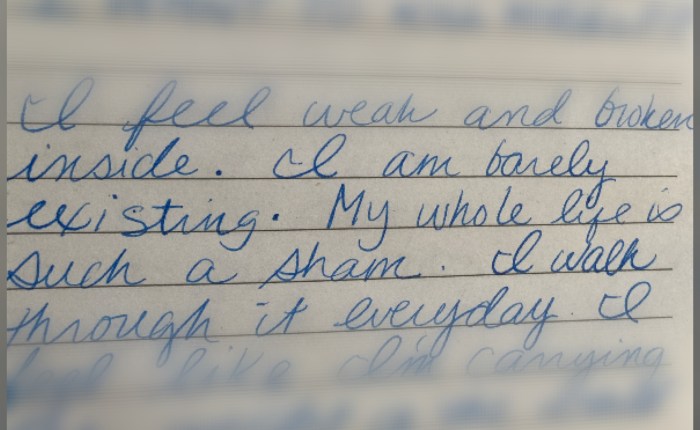 I feel weak and broken
inside. I am barely
existing. My whole life is
such a sham. I walk
through it everyday. I
feel like I'm carrying